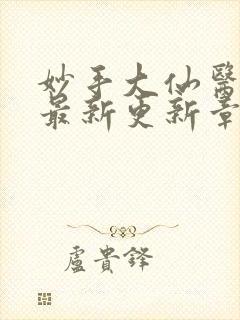 妙手大仙醫
最新更新章
盧貴鋒